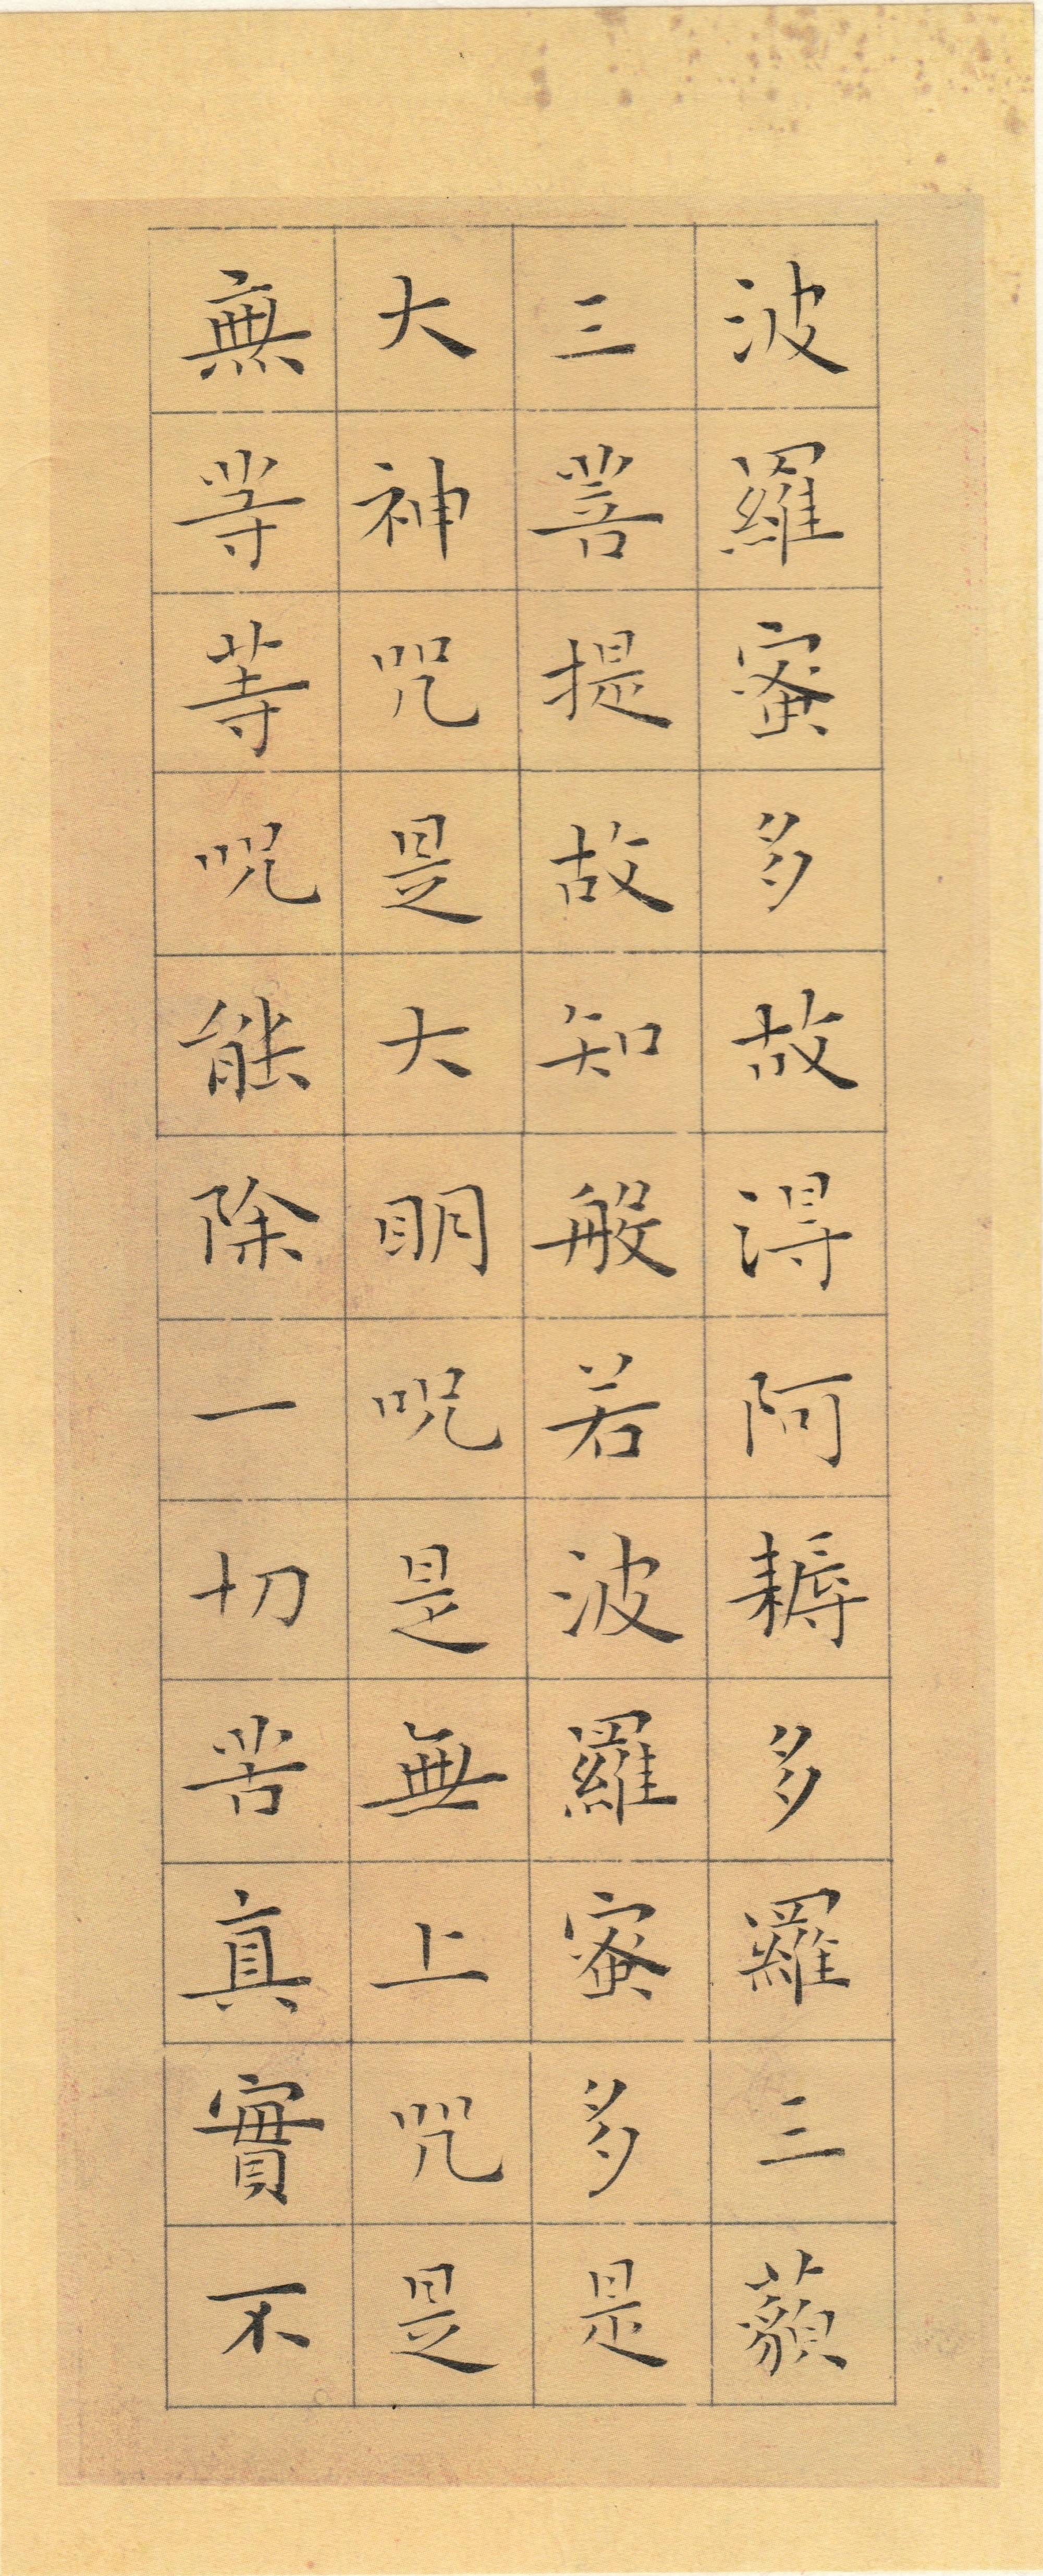 波羅蜜多故得阿耨多羅三藐
三菩提故知般若波羅蜜多是
大神咒是大明呪是無上咒是
無等等呪能除一切苦真實不